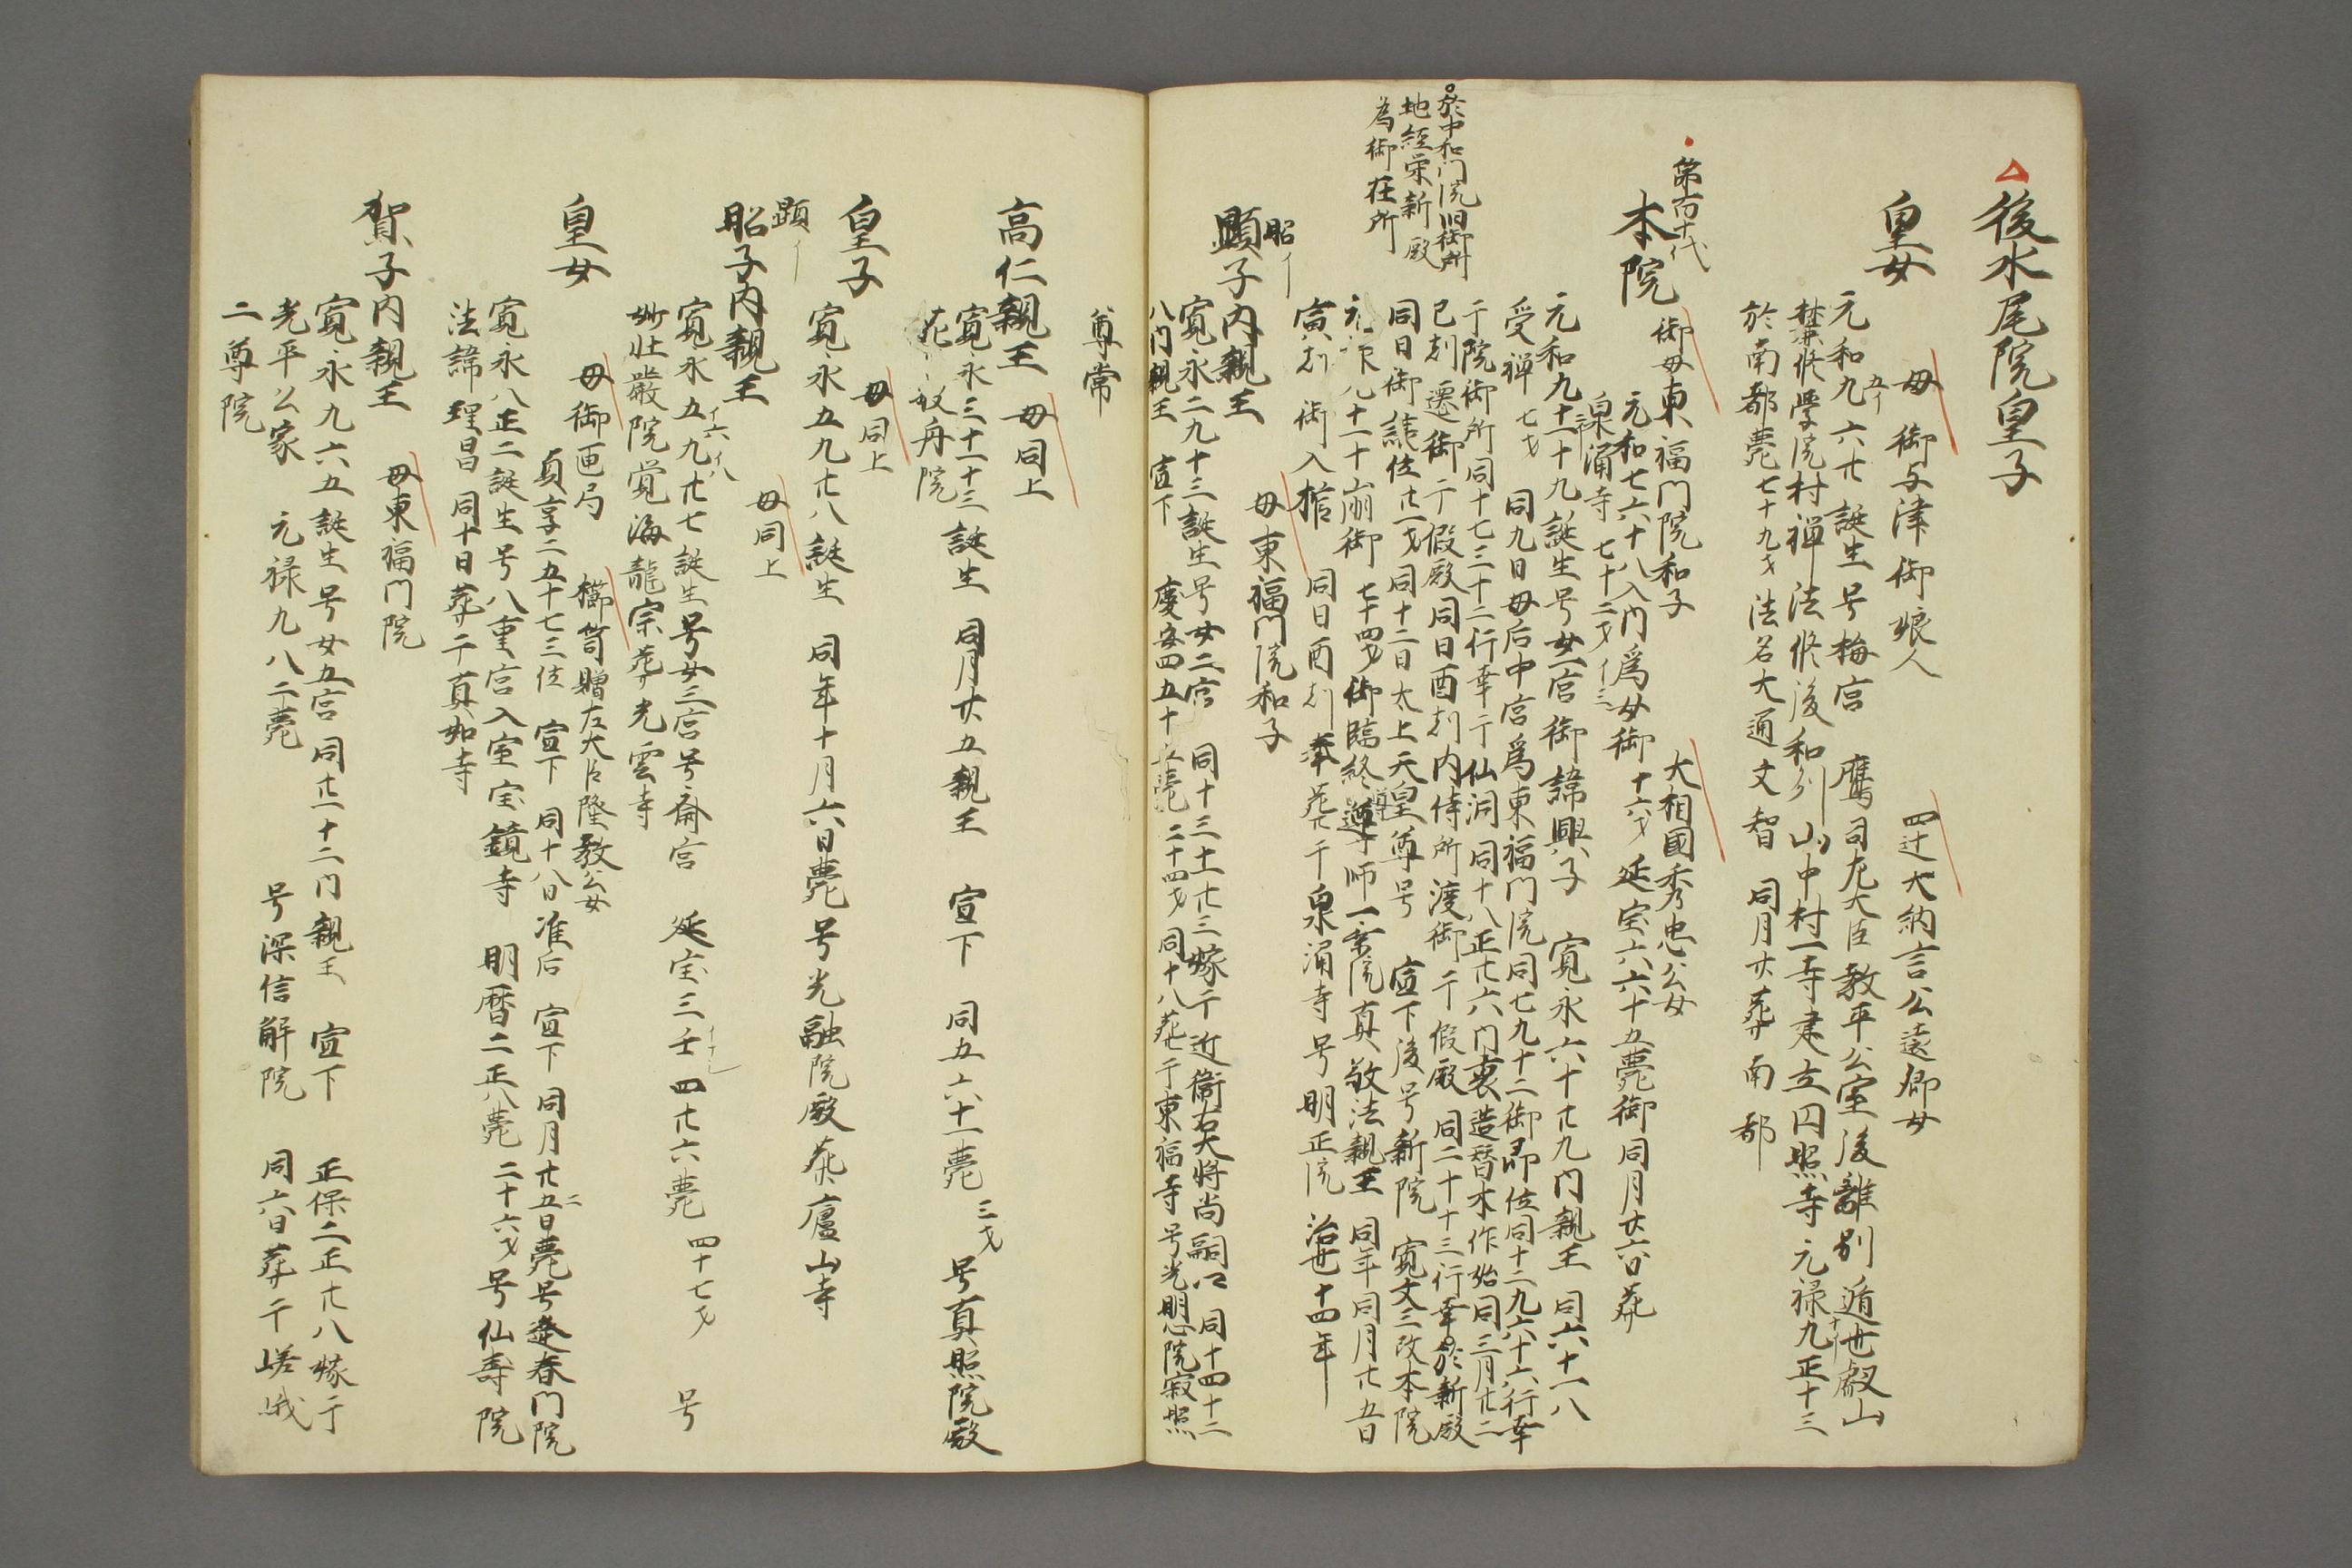 後水尾院皇子
皇女 母 御与津御娘人 四辻大納言公遠卿女
元和九六廿誕生号梅宮 鷹司左大臣教平公室後離別 遁世叡山
五イ
禁修学院村禅法修後和列山中村一寺建立円照寺 元禄九正十三
十イ
於南都薨七十九才 法名大通文智 同月廿葬南都
第百十代
本院 御母東福門院和子 大相國秀忠公女
元和七六十八入内為女御十六才 延宝六六十五薨御同月廿六日葬
泉涌寺 七十二才イ三
元和九十一十九誕生号女一宮御諱興子 寛永六十廿九内親王 同六十一八
三イ
受禅七才 同九日母后中宮為東福門院同七九十二御即位同十二九六十六行幸
于院御所同十七三十二行幸于仙洞同十八正廿六内裏造替木作始同三月廿二
巳刻遷御于假殿同日酉刻内侍所渡御于假殿 同二十十三行幸於新殿
同日御譲位廿一才同十二日太上天皇尊号 宣下後号新院 寛文三改本院
於中和門院旧御所
地経栄新殿
為御在所
十一十崩御 七十四才御臨終導師一乗院真敬法親王 同年同月廿五日
寅刻 御入棺 同日酉刻奉葬于泉涌寺号明正院 治世十四年
昭イ
顕子内親王 母東福門院和子
寛永二九十三誕生号女二宮 同十三十一廿三嫁于近衛右大将尚嗣公 同十四十二
八内親王 宣下 慶安四五十五薨二十四才同十八葬于東福寺号光明心院寂照
尊常
高仁親王 母同上
寛永三十一十三誕生 同月廿五親王 宣下 同五六十一薨三才 号真照院殿
葬般舟院
皇子 母同上
寛永五九廿八誕生 同年十月六日薨号光融院殿葬廬山寺
顕イ
昭子内親王 母同上
寛永五九廿七誕生号女三宮号斎宮 延宝三壬四廿六薨四十七才 号
イ六イ八
イナシ
妙壮厳院覚海龍宗葬光雲寺
皇女 母御匣局 櫛笥贈左大臣隆教公女
貞享二五十七三位 宣下 同十八日准后 宣下 同月廿五日薨号逢春門院
二
寛永八正二誕生号八重宮入室宝鏡寺 明暦二正八薨二十六才号仙寿院
法諱理昌 同十日葬于真如寺
賀子内親王 母東福門院
寛永九六五誕生号女五宮 同廿一十二内親王 宣下 正保二正廿八嫁于
光平公家 元禄九八二薨 号深信解院 同六日葬于嵯峨
二尊院